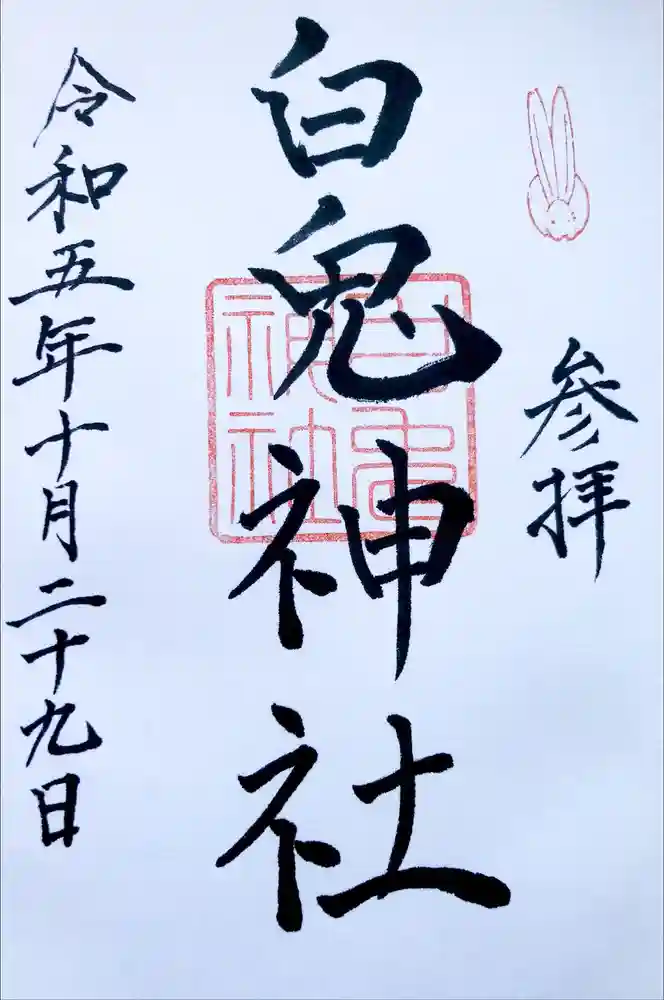 参拝
白兎神社
白兎
神社
令和五年十月二十九日